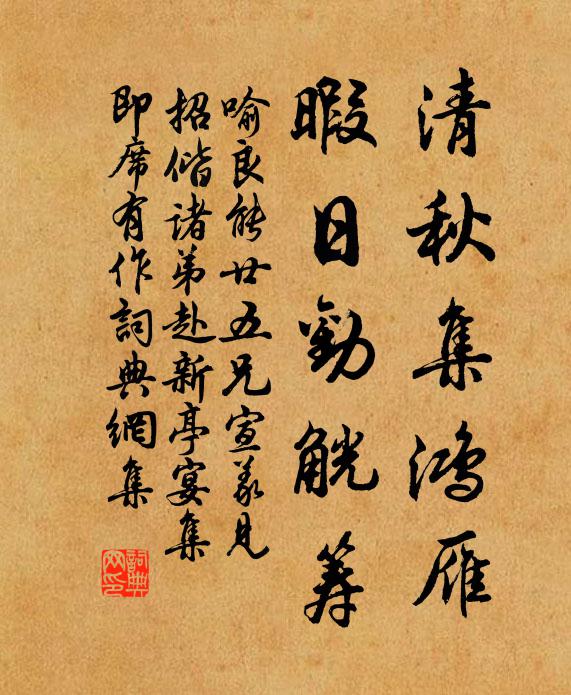 清秋集鴻雁
暇日勸觥筹
喻良能廿五兄宣義見
招偕诸弟赴新亭宴集
即席有作詞典網集
詞典
网印